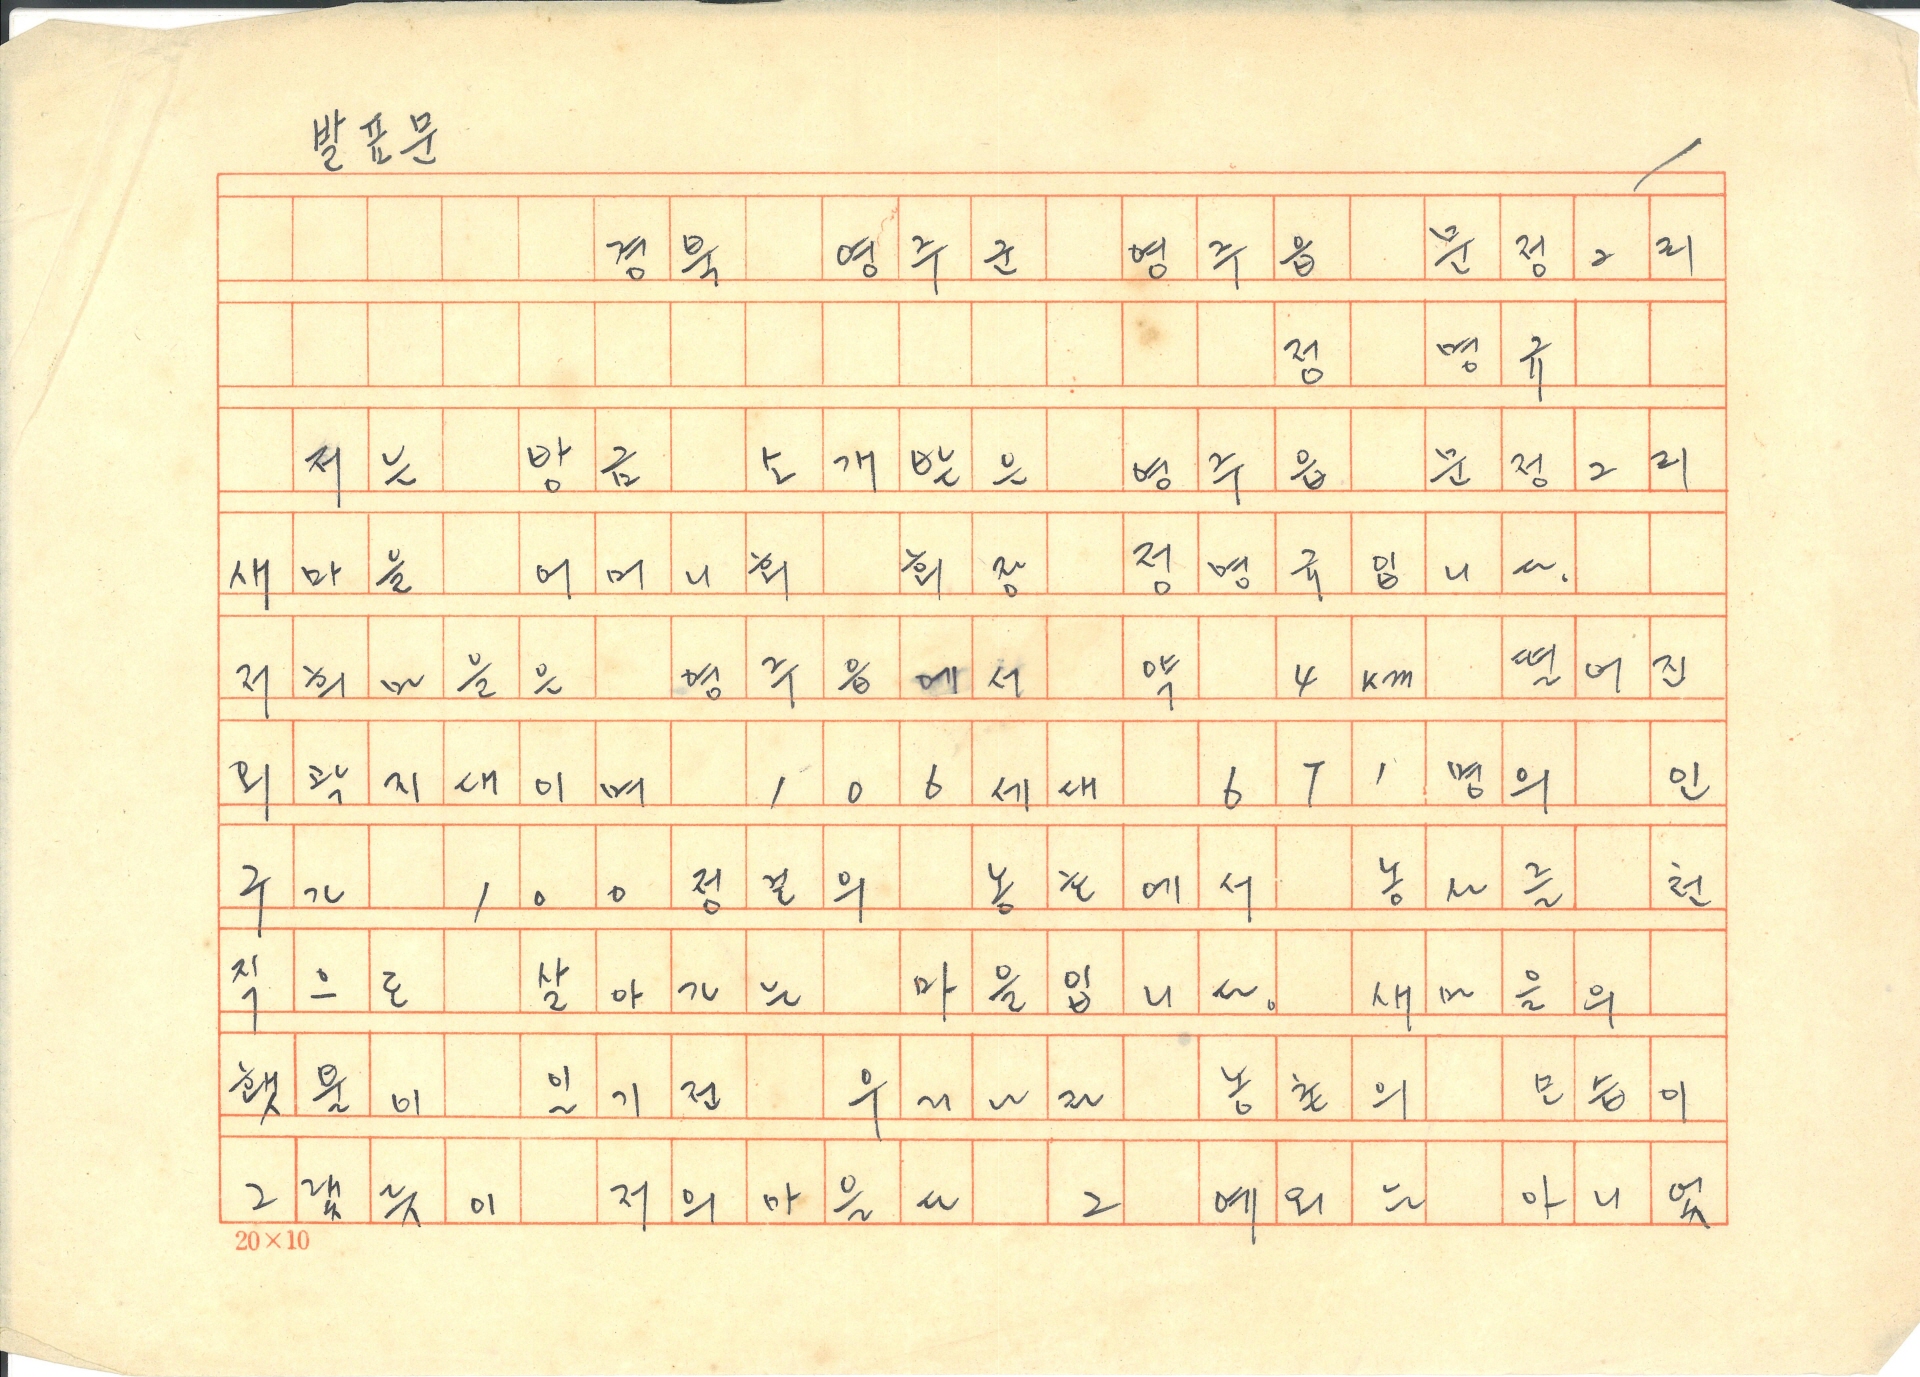 발표문
경북 영주군 영주읍 문정2리
정 명규
저는 방금 소개받은 영주읍 문정2리
새마을 어머니회 회장 정명규입니다.
저희마을은 영주읍에서 약 4km 떨어진
외곽지대이며 106세대 671명의 인
구가 100정보의 농촌에서 농사를 천
직으로 살아가는 마을입니다. 새마을의
햇불이 일기전 우리나라 농촌의 모습이
그랬듯이 저의마을도 그 예외는 아니었
20×10